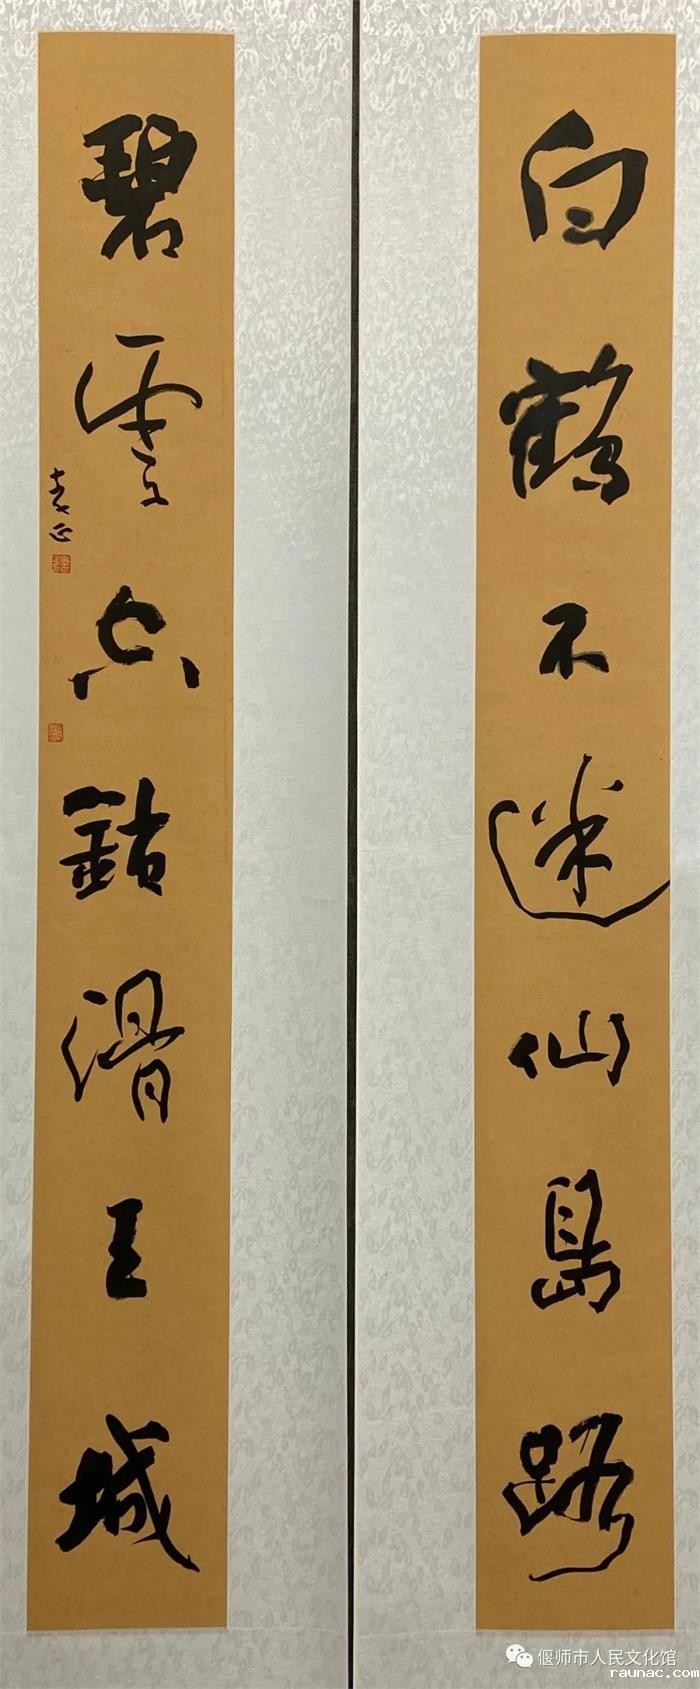 白鶴不迷仙島路
碧雲鎖滑王城
偃师市人民文化馆
raunac.com